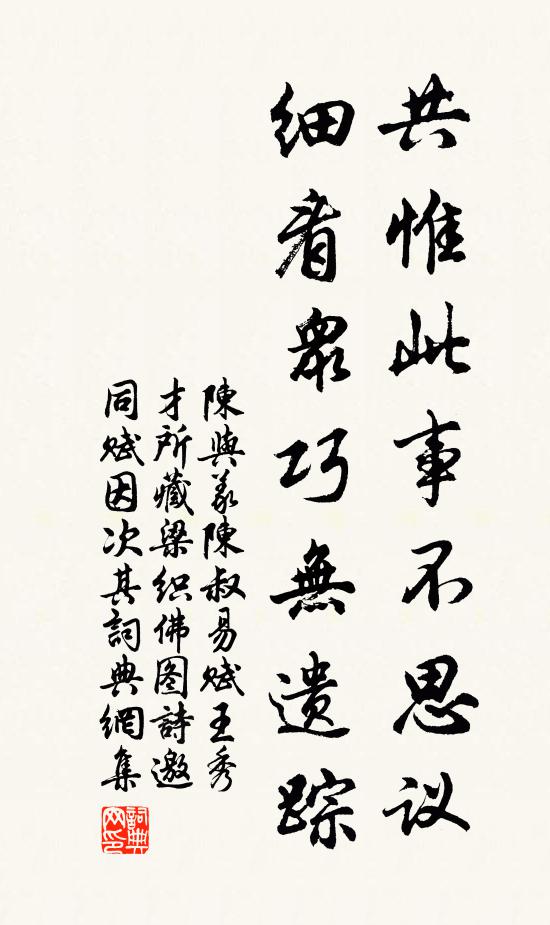 共惟此事不思议
细看眾巧無遗踪
陳與義陳叔易赋王秀
才所藏梁织佛图詩邀
同赋因次其詞典網集
詞典网印